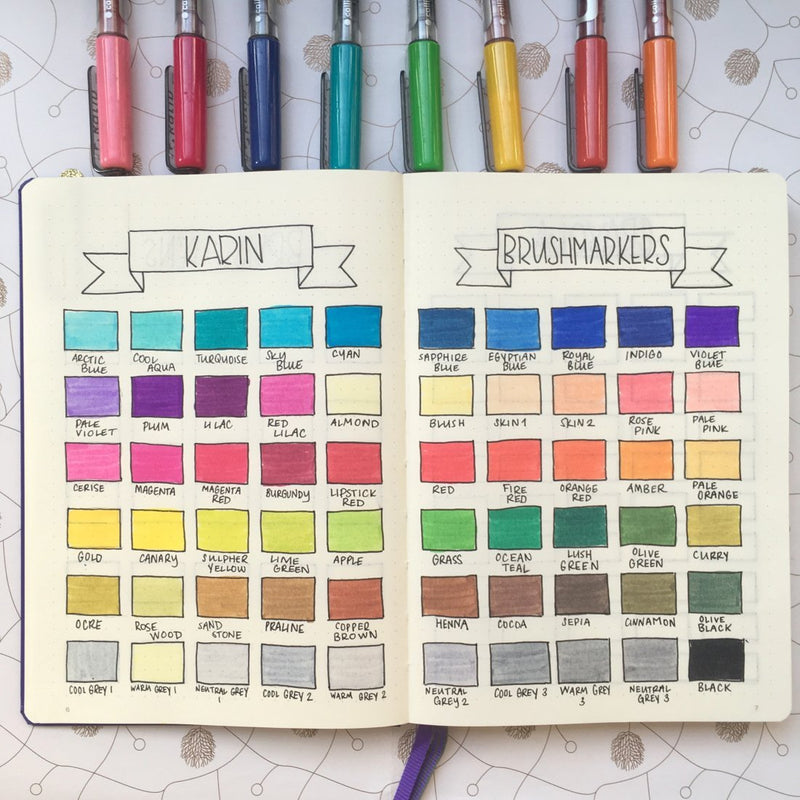 KARIN
BRUSHMARKERS
ARCTIC BLUE
COOL AQUA
TURQUOISE
SKY BLUE
CYAN
PALE VIOLET
PLUM
LILAC
RED LILAC
ALMOND
CERISE
MAGENTA
MAGENTA RED
BURGUNDY
LIPSTICK RED
GOLD
CANARY
SULPHER YELLOW
LIME GREEN
APPLE
OCRE
ROSE WOOD
SAND STONE
PRALINE
COPPER BROWN
COOL GREY 1
WARM GREY 1
NEUTRAL GREY 1
COOL GREY 2
WARM GREY 2
6
SAPPHIRE BLUE
EGYPTIAN BLUE
ROYAL BLUE
INDIGO
VIOLET BLUE
BLUSH
SKIN 1
SKIN 2
ROSE PINK
PALE PINK
RED
FIRE RED
ORANGE RED
AMBER
PALE ORANGE
GRASS
OCEAN TEAL
LUSH GREEN
OLIVE GREEN
CURRY
HENNA
COCOA
SEPIA
CINNAMON
OLIVE BLACK
NEUTRAL GREY 2
COOL GREY 3
WARM GREY 3
NEUTRAL GREY 3
BLACK
7